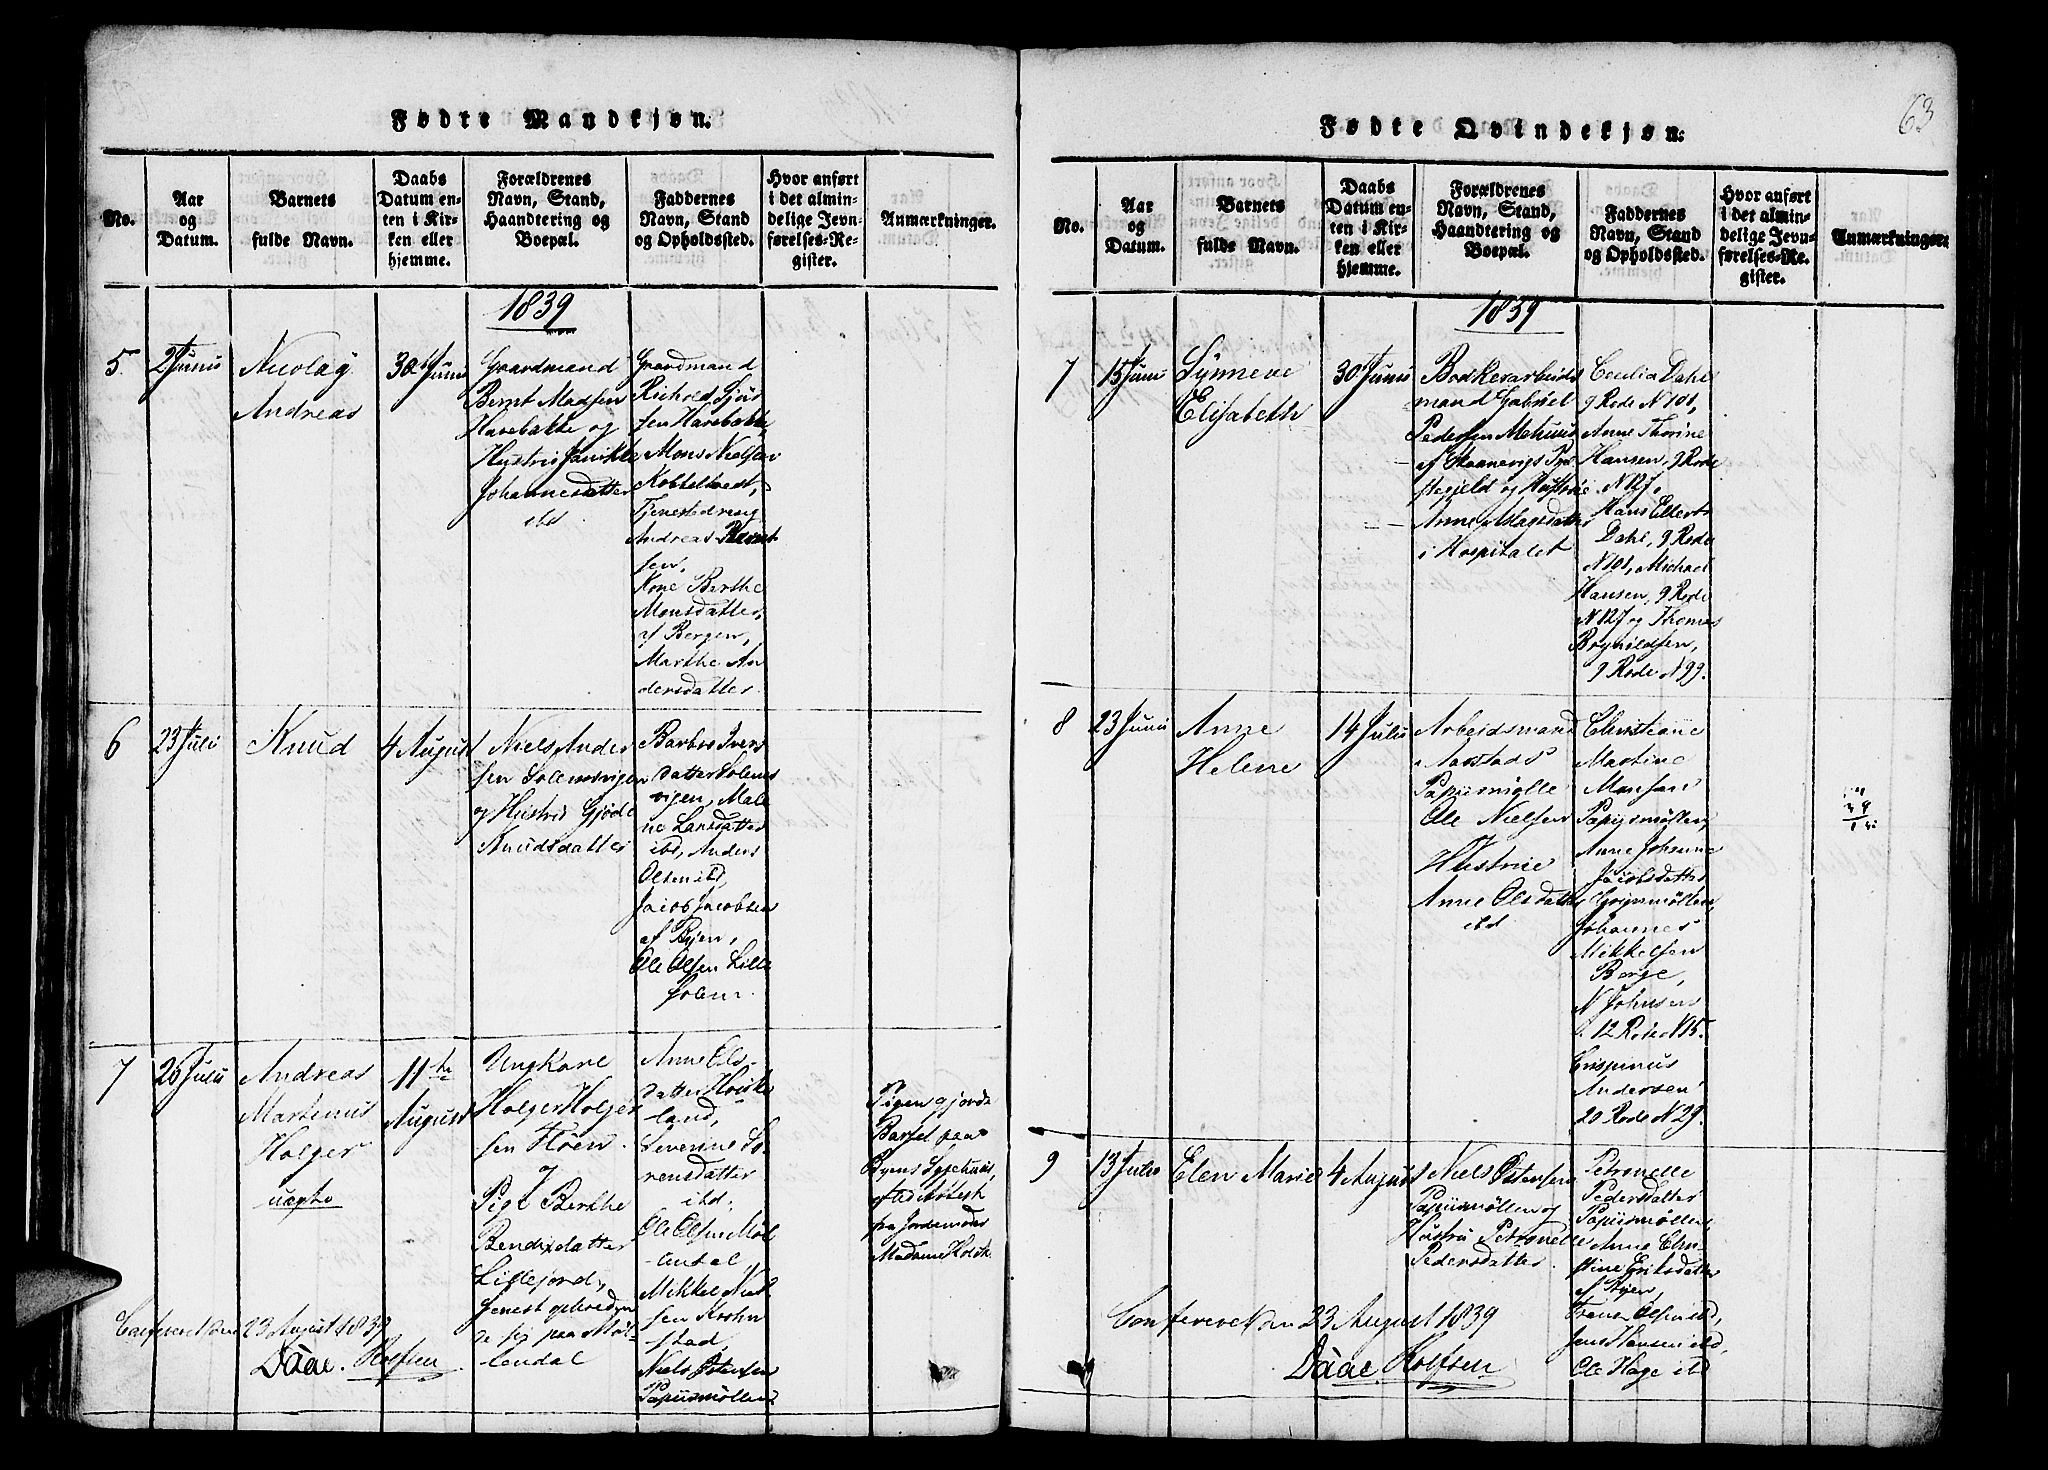 63
Fødte Mandkjøn.
No.
Aar
og
Datum.
Barnets
fulde Navn.
Daabs
Datum en-
ten i Kir-
ken eller
hjemme.
Forældrenes
Navn, Stand,
Haandtering og
Boepæl.
Faddernes
Navn, Stand
og Opholdssted.
Hvor anført
i det almin-
delige Jevn-
førelses-Re-
gister.
Anmærkninger.
1839
5.
2 Junii
Nicolay
Andreas
30te Junii
Gaardmand
Bernt Madsen
Harebakke og
Hustrue
Johannesdatter
ibd
Gaardmand
Richold Gjør
sen Harebakke,
Mons Nielsen
Kobbeltvedt,
Tjenestedreng
Andreas Bernt
sen,
Kone Berthe
Monsdatter,
af Bergen,
Marthe An
dersdatter.
6
23 Juli
Knud
4 August
Niels Ander
sen Solemsvigen
og Hustrue Gjøde
Knudsdatter
Barbro Ivers
datter Solems
vigen, Male
ne Larsdatter
ibd, Anders
Olsen ibd,
Jacob Jacobsen
af Byen,
Ole Olsen Lille
Solem.
7
26 Julii
Andreas
Martinus
Holger
uægte
11te
August
Ungkarl
Holger Holger
sen Hoen.
Pige Berthe
Bendixdatter
Lillejord,
senest opholden
de sig paa Møl-
lendal
Anne Ols-
datter
land,
Severine So-
rensdatter
ibd.
Ole Olsen Møl
lendal,
Mikkel Niel
sen Krohn
stad,
Niels Østensen
Papiirsmøllen
Pigen gjorde
Barsel paa
Byens Sygehuus,
efter Attest
fra Jordemoder
Madame Holck
Confereret den 23 August 1839
Daae. Rolfsen
Fødte Qvindekjøn.
No.
Aar
og
Datum.
Barnets
fulde Navn.
Daabs
Datum en-
ten i Kir-
ken eller
hjemme.
Forældrenes
Navn, Stand,
Haandtering og
Boepæl.
Faddernes
Navn, Stand
og Opholdssted.
Hvor anført
i det almin-
delige Jevn-
førelses-Re-
gister.
Anmærkninger.
1839
7
15 Junii
Synneve
Elisabeth
30 Junii
Bødkerarbeids
mand Gabriel
Pedersen
af Skaanevigs Præ
stegjeld og Hustrue
Anne Aslagsdatter
i Hospitalet
Cecilia Dahl
9 Rode N 101,
Anne Thorine
Hansen, 9 Rode
N 127,
Hans Ellerts
Dahl, 9 Rode
N 101, Michael
Hansen, 9 Rode
N 127 og Thomas
9 Rode N 99.
8
23 Junii
Anne
Helene
14 Julii
Arbeidsmand
Aarstads
Papiirmølle
Ole Nielsen
Hustrue
Anne Olsdatter
ibd
Christiane
Martine
Monsen
Papiirsmøllen,
Anne Johanne
Jacobsdatter
Johannes
Mikkelsen
Berge,
N Johnsen
12 Rode N 15.
Crispinus
Andersen
20 Rode N 29.
9
13 Julii
Elen Marie
4 August
Niels Østensen
Papiirmøllen og
Hustru Petronelle
Pedersdatter.
Petronelle
Pedersdatter
Papiirsmøllen
Anne Chri-
stine Eriksdatter
af Byen,
Olsen ibd,
Jens Hansen ibd,
Ole Hage ibd
Confereret den 23 August 1839
Daae Rolfsen